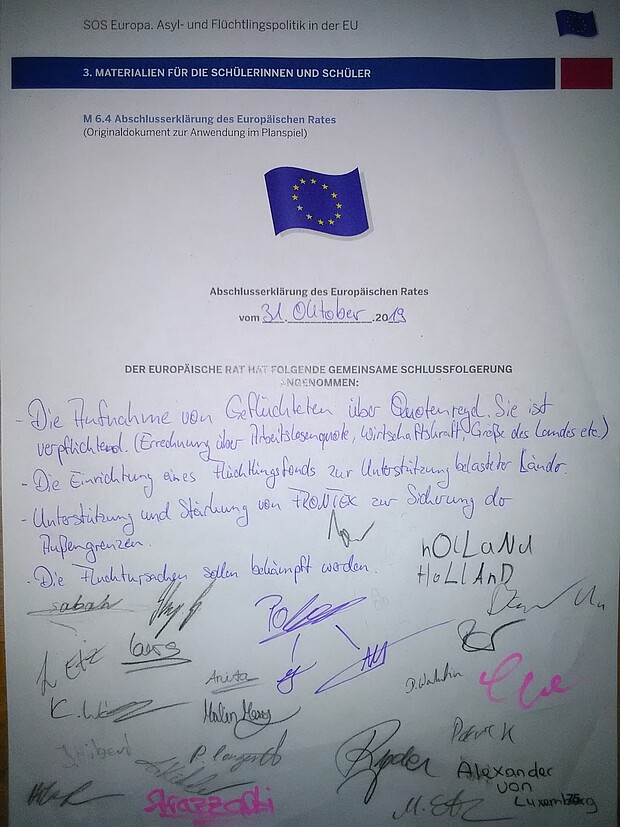 SOS Europa. Asyl- und Flüchtlingspolitik in der EU
3. MATERIALIEN FÜR DIE SCHÜLERINNEN UND SCHÜLER
M 6.4 Abschlusserklärung des Europäischen Rates
(Originaldokument zur Anwendung im Planspiel)
Abschlusserklärung des Europäischen Rates
vom 31. Oktober .2019
DER EUROPÄISCHE RAT HAT FOLGENDE GEMEINSAME SCHLUSSFOLGERUNG
ANGENOMMEN:
- Die Aufnahme von Geflüchteten über Quotenregel. Sie ist
verpflichtend. (Errechnung über Arbeitslosenquote, Wirtschaftskraft, Größe des Landes etc.)
- Die Einrichtung eines Flüchtlingsfonds zur Unterstützung belasteter Länder.
- Unterstützung und Stärkung von FRONTEX zur Sicherung der
Außengrenzen.
- Die Fluchtursachen sollen bekämpft werden.
HOLLaNd
HoLLAnD
sabah
Anita
Patrick
Alexander
von
Luxemburg